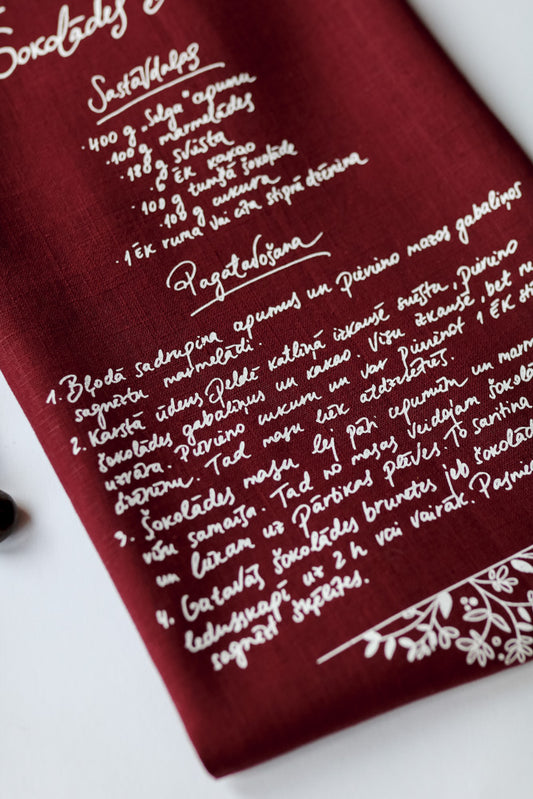 Šokolādes
Sastāvdaļas
· 400 g „Selga" cepumu
· 100 g marmelādes
· 180 g sviesta
· 6 ĒK kakao
· 100 g tumšā šokolāde
· 100 g cukura
· 1 ĒK ruma vai cita stiprā dzēriena
Pagatavošana
1. Bļodā sadrupina cepumus un pievieno mazos gabaliņos
sagrieztu marmelādi.
2. Karstā ūdens peldē katliņā izkausē sviestu, pievieno
šokolādes gabaliņus un kakao. Visu izkausē, bet ne
uzvāra. Pievieno cukuru un var pievienot 1 ĒK sti
dzērienu. Tad masu liek atdzesēties.
3. Šokolādes masu lej pāri cepumiem un marm
visu samaisa. Tad no masas veidojam šokolā
un liekam uz Pārtikas plēves. To saritina
4. Gatavās šokolādes bruņetes jeb šokolād
ledusskapī uz 2 h vai vairāk. Pasnie
sagriezt šķēlītēs.